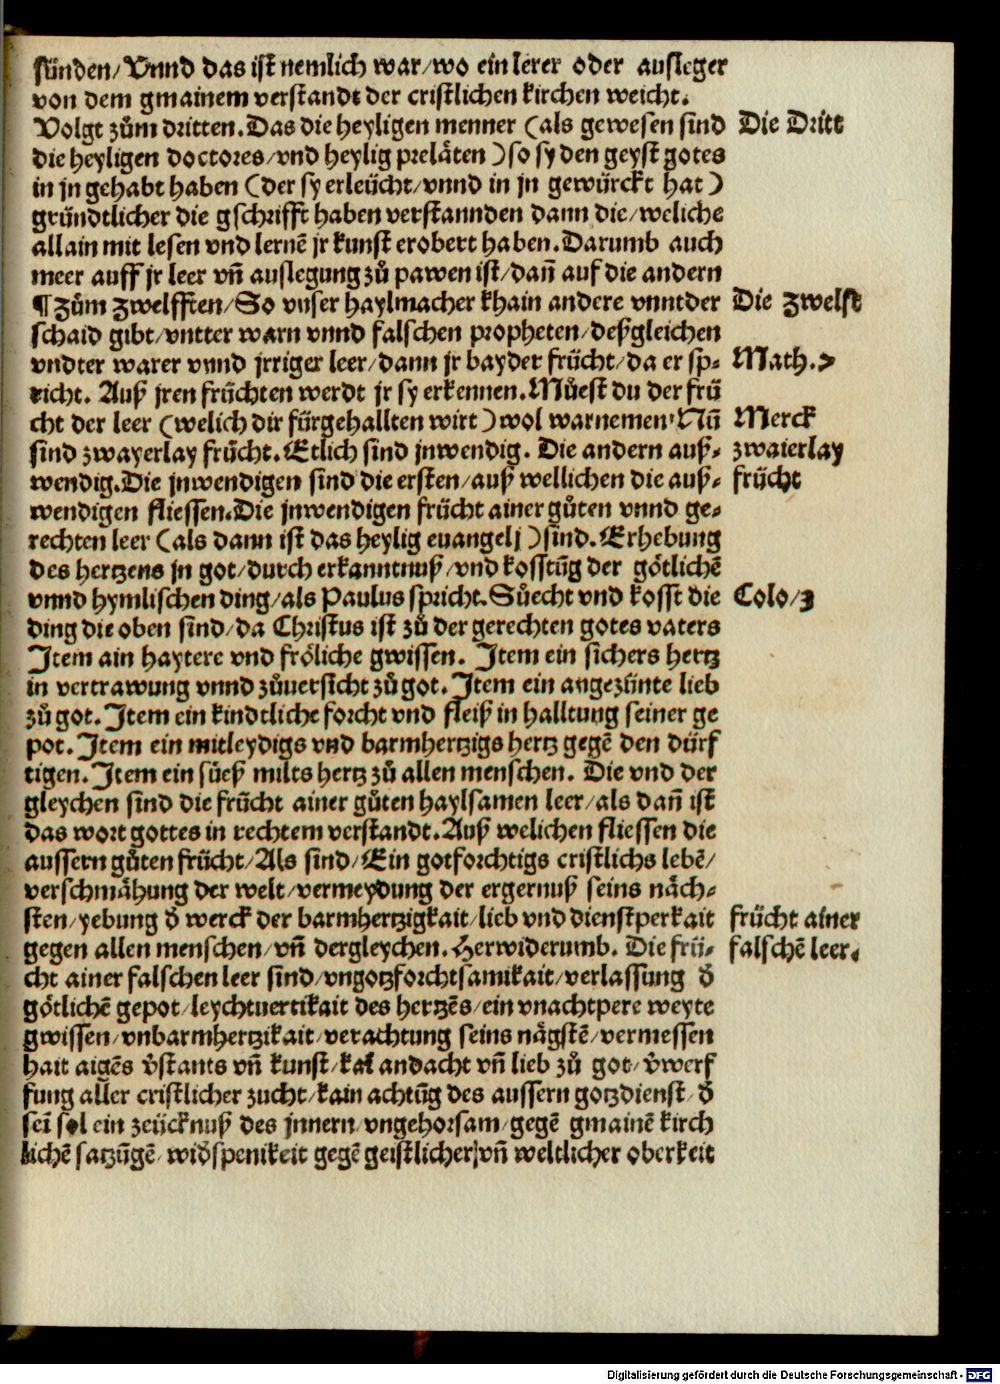 sünden/Vnnd das ist nemlich war/wo ein lerer oder ausleger
von dem gmainem verstandt der cristlichen kirchen weicht.
Volgt zům dritten. Das die heyligen menner (als gewesen sind Die Dritt
die heyligen doctores/vnd heylig preläten) so sy den geyst gotes
in jn gehabt haben (der sy erleücht/vnnd in jn gewürckt hat)
gründtlicher die gschrifft haben verstannden dann die/weliche
allain mit lesen vnd lernē jr kunst erobert haben. Darumb auch
meer auff jr leer vn̄ auslegung zů pawen ist/dan̄ auf die andern
¶ Zům zwelfften/So vnser haylmacher khain andere vnntder Die zwelft
schaid gibt/vntter warn vnnd falschen propheten/deßgleichen
vndter warer vnnd jrriger leer/dann jr bayder frücht/da er sp- Math.7
richt. Auß jren früchten werdt jr sy erkennen. Můest du der frü
cht der leer (welich dir fürgehallten wirt) wol warnemen. Nū Merck
sind zwayerlay frücht. Etlich sind jnwendig. Die andern auß- zwaierlay
wendig. Die jnwendigen sind die ersten/auß wellichen die auß- frücht
wendigen fliessen. Die jnwendigen frücht ainer gůten vnnd ge-
rechten leer (als dann ist das heylig euangelj) sind. Erhebung
des hertzens jn got/durch erkanntnuß/vnd kosstūg der götlichē
vnnd hymlischen ding/als Paulus spricht. Sůecht vnd kosst die Colo/3
ding die oben sind/da Christus ist zů der gerechten gotes vaters
Item ain haytere vnd fröliche gwissen. Item ein sichers hertz
in vertrawung vnnd zůuersicht zů got. Item ein angezünte lieb
zů got. Item ein kindtliche forcht vnd fleiß in halltung seiner ge
pot. Item ein mitleydigs vnd barmhertzigs hertz gegē den dürf
tigen. Item ein süeß milts hertz zů allen menschen. Die vnd der
gleychen sind die frücht ainer gůten haylsamen leer/als dan̄ ist
das wort gottes in rechtem verstandt. Auß welichen fliessen die
aussern gůten frücht/Als sind/Ein gotforchtigs cristlichs lebē/
verschmähung der welt/vermeydung der ergernuß seins näch-
sten/yebung d̄ werck der barmhertzigkait/lieb vnd dienstperkait frücht ainer
gegen allen menschen/vn̄ dergleychen. Herwiderumb. Die frü- falschē leer.
cht ainer falschen leer sind/vngotzforchtsamikait/verlassung d̄
götlichē gepot/leychtuertikait des hertzēs/ein vnachtpere weyte
gwissen/vnbarmhertzikait/verachtung seins nägstē/vermessen
hait aigēs v̄stants vn̄ kunst/kai andacht vn̄ lieb zů got/v̄werf
fung aller cristlicher zucht/kain achtūg des aussern gotzdienst/d̄
sei͂ sol ein zeücknuß des jnnern/vngehorsam/gegē gmainē kirch
lichē satzūgē/wid̄spenikeit gegē geistlicher/vn̄ weltlicher oberkeit
Digitalisierung gefördert durch die Deutsche Forschungsgemeinschaft - DFG